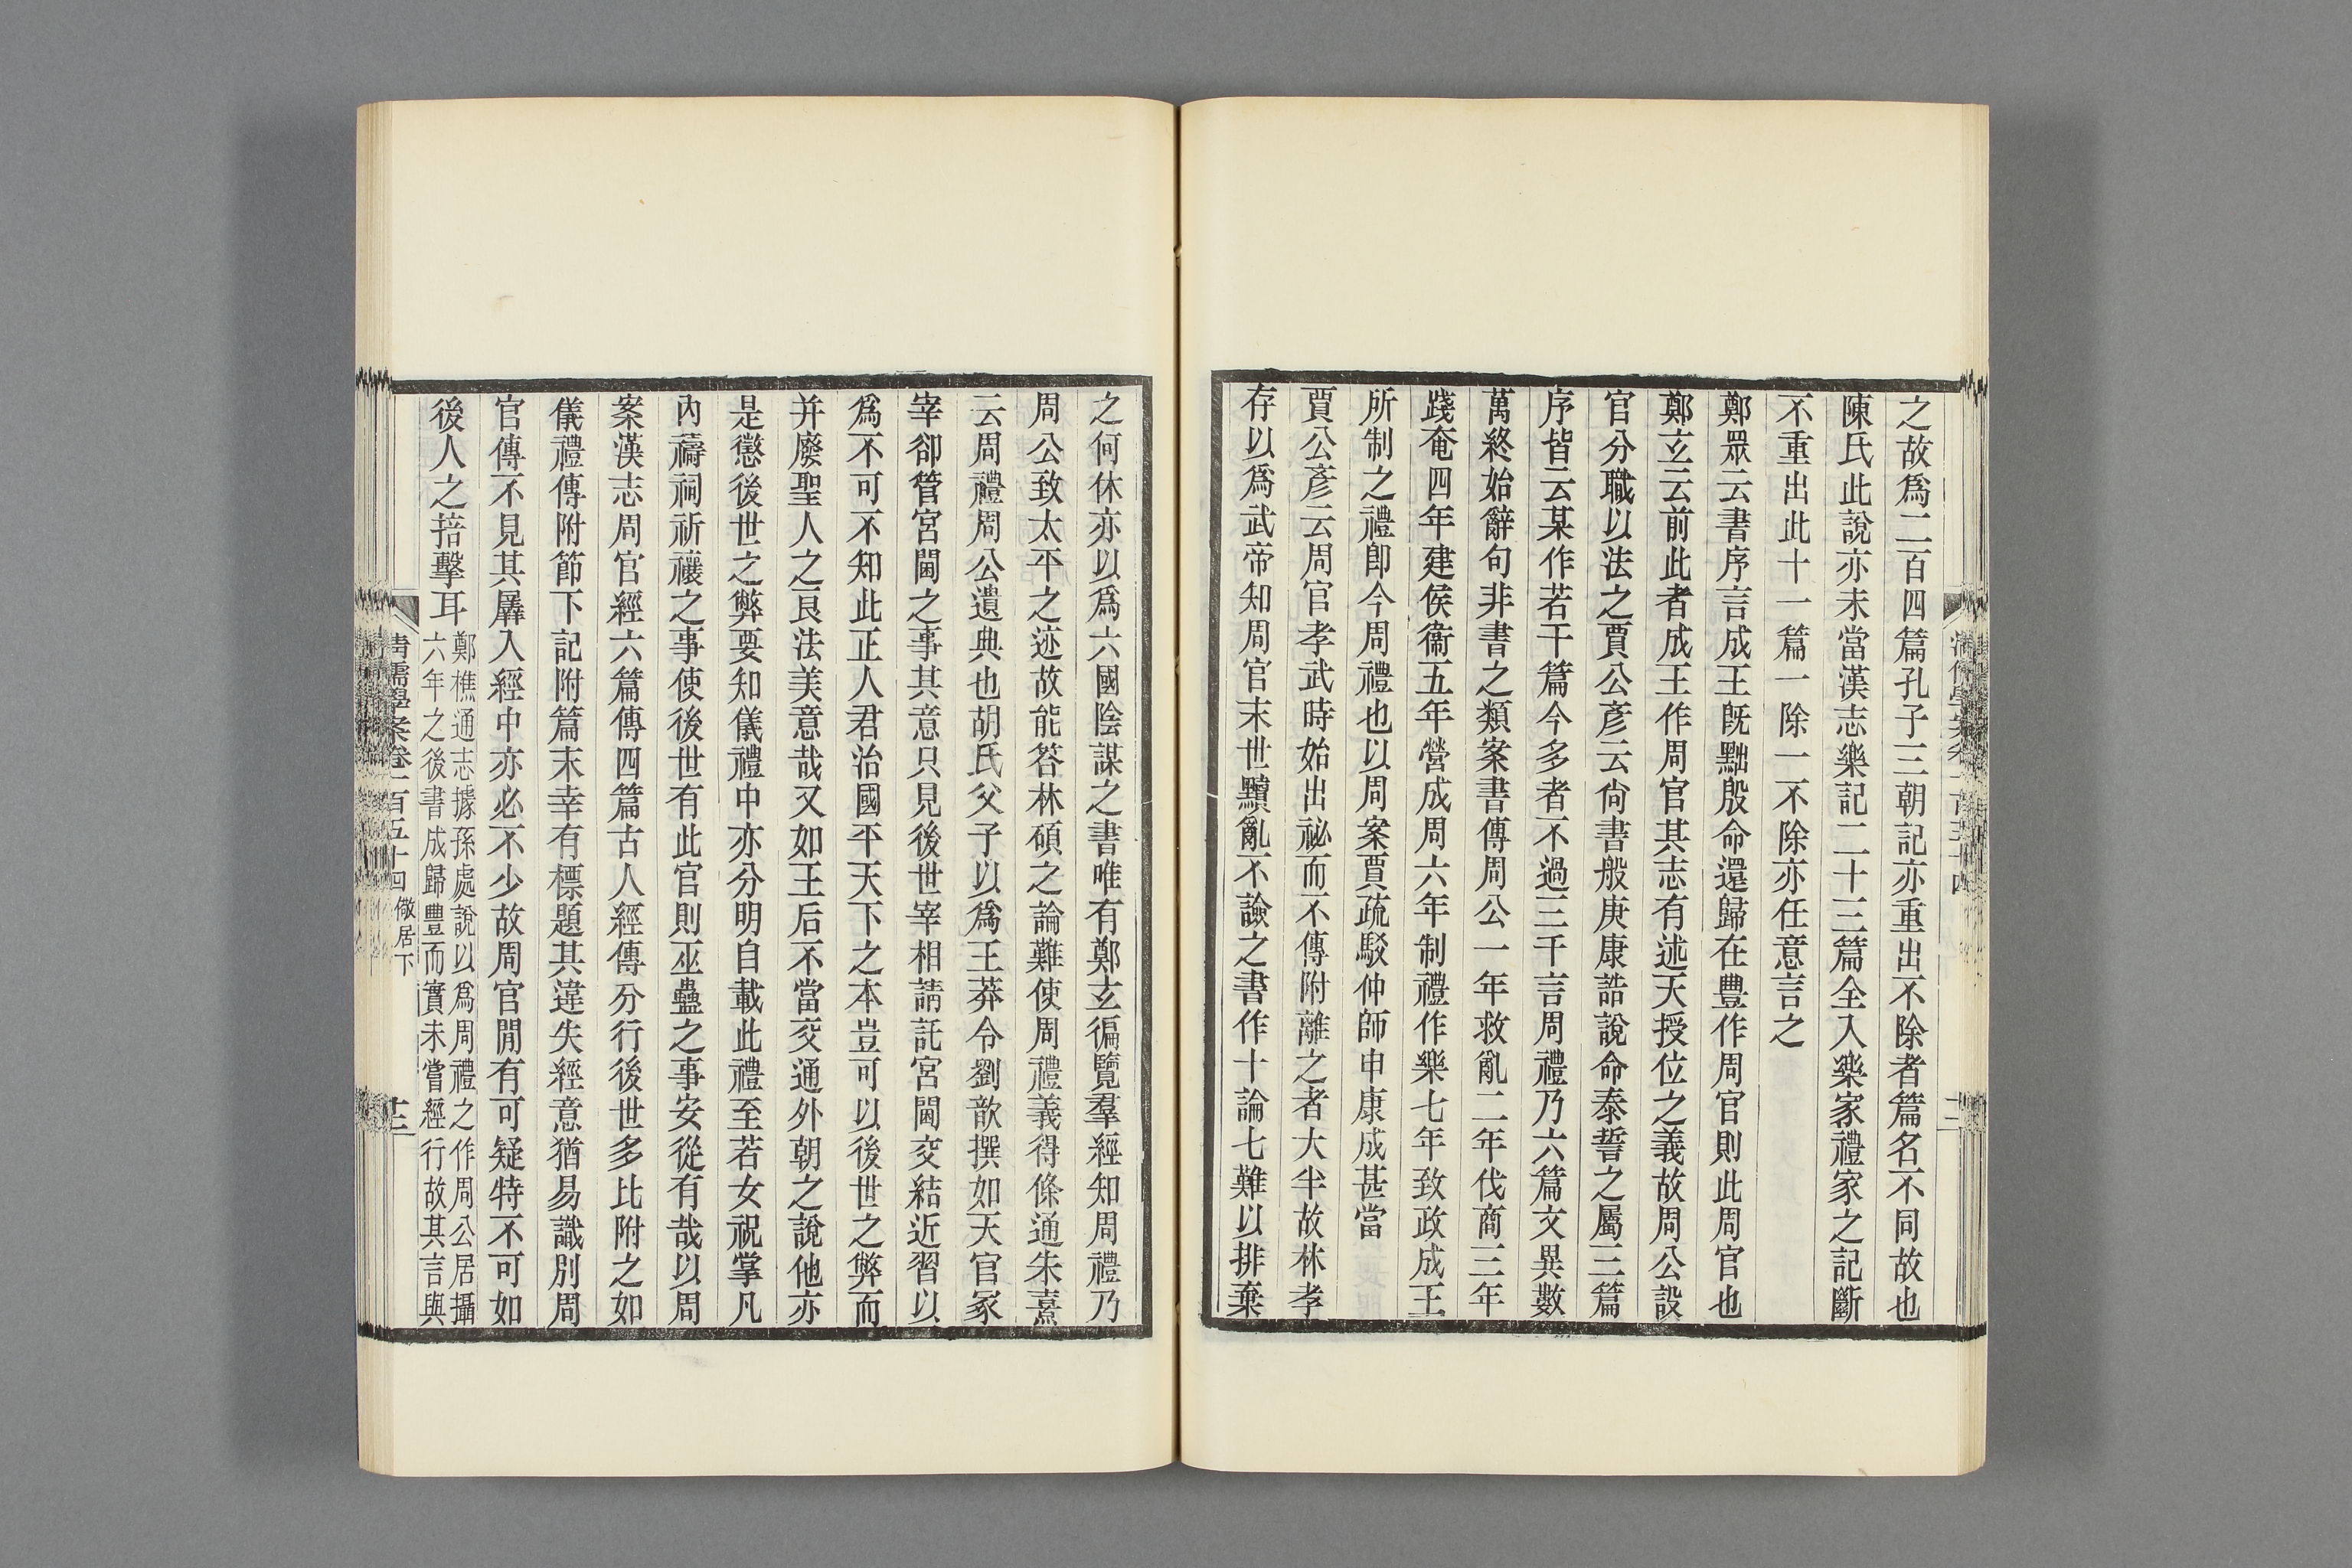 之故爲二百四篇孔子三朝記亦重出不除者篇名不同故也
陳氏此說亦未當漢志樂記二十三篇全入樂家禮家之記斷
不重出此十一篇一除一不除亦任意言之
鄭眾云書序言成王旣黜殷命還歸在豐作周官則此周官也
鄭玄云前此者成王作周官其志有述天授位之義故周公設
官分職以法之賈公彥云尙書般庚康誥說命泰誓之屬三篇
序皆云某作若干篇今多者不過三千言周禮乃六篇文異數
萬終始辭句非書之類案書傳周公一年救亂二年伐商三年
踐奄四年建侯衞五年營成周六年制禮作樂七年致政成王
所制之禮卽今周禮也以周案賈疏駁仲師申康成甚當
賈公彥云周官孝武時始出祕而不傳附離之者大半故林孝
存以爲武帝知周官末世黷亂不譣之書作十論七難以排棄
之何休亦以爲六國陰謀之書唯有鄭玄徧覽羣經知周禮乃
周公致太平之迹故能答林碩之論難使周禮義得條通朱熹
云周禮周公遺典也胡氏父子以爲王莽令劉歆撰如天官冢
宰卻管宮閫之事其意只見後世宰相請託宮闈交結近習以
爲不可不知此正人君治國平天下之本豈可以後世之弊而
并廢聖人之良法美意哉又如王后不當交通外朝之說他亦
是懲後世之弊要知儀禮中亦分明自載此禮至若女祝掌凡
內禱祠祈禳之事使後世有此官則巫蠱之事安從有哉以周
案漢志周官經六篇傳四篇古人經傳分行後世多比附之如
儀禮傳附節下記附篇末幸有標題其違失經意猶易識別周
官傳不見其羼入經中亦必不少故周官閒有可疑特不可如
後人之掊擊耳
鄭樵通志據孫處說以爲周禮之作周公居攝
六年之後書成歸豐而實未嘗經行故其言與
清儒學案卷一百五十四 儆居下